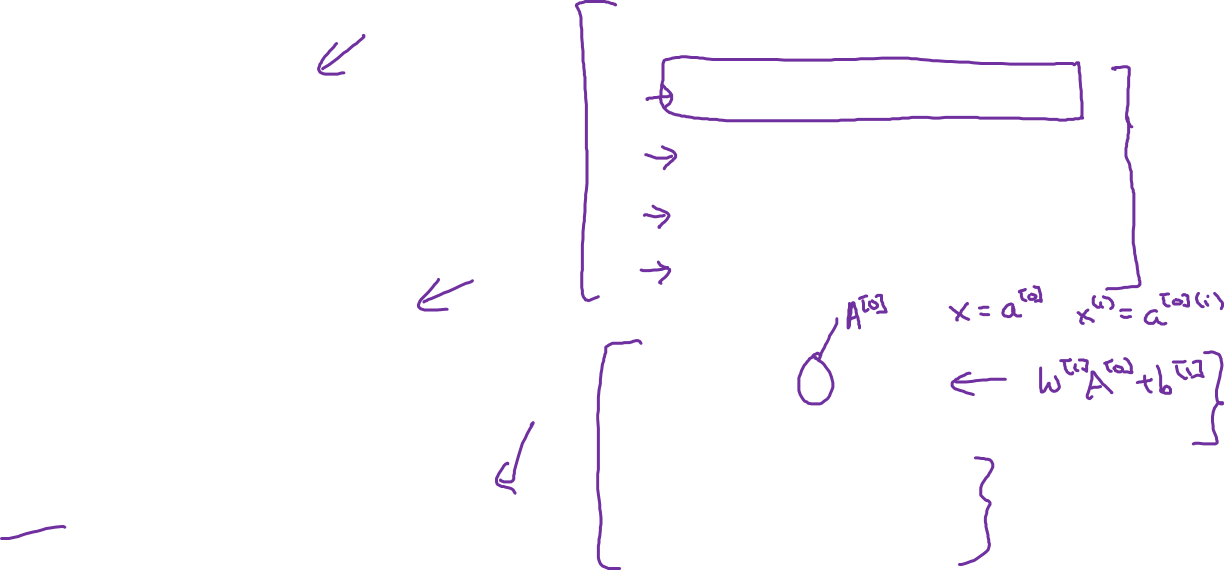 A^[0]
x = a^[0] x^(i) = a^[0](i)
W^[1]A^[0]+b^[1]